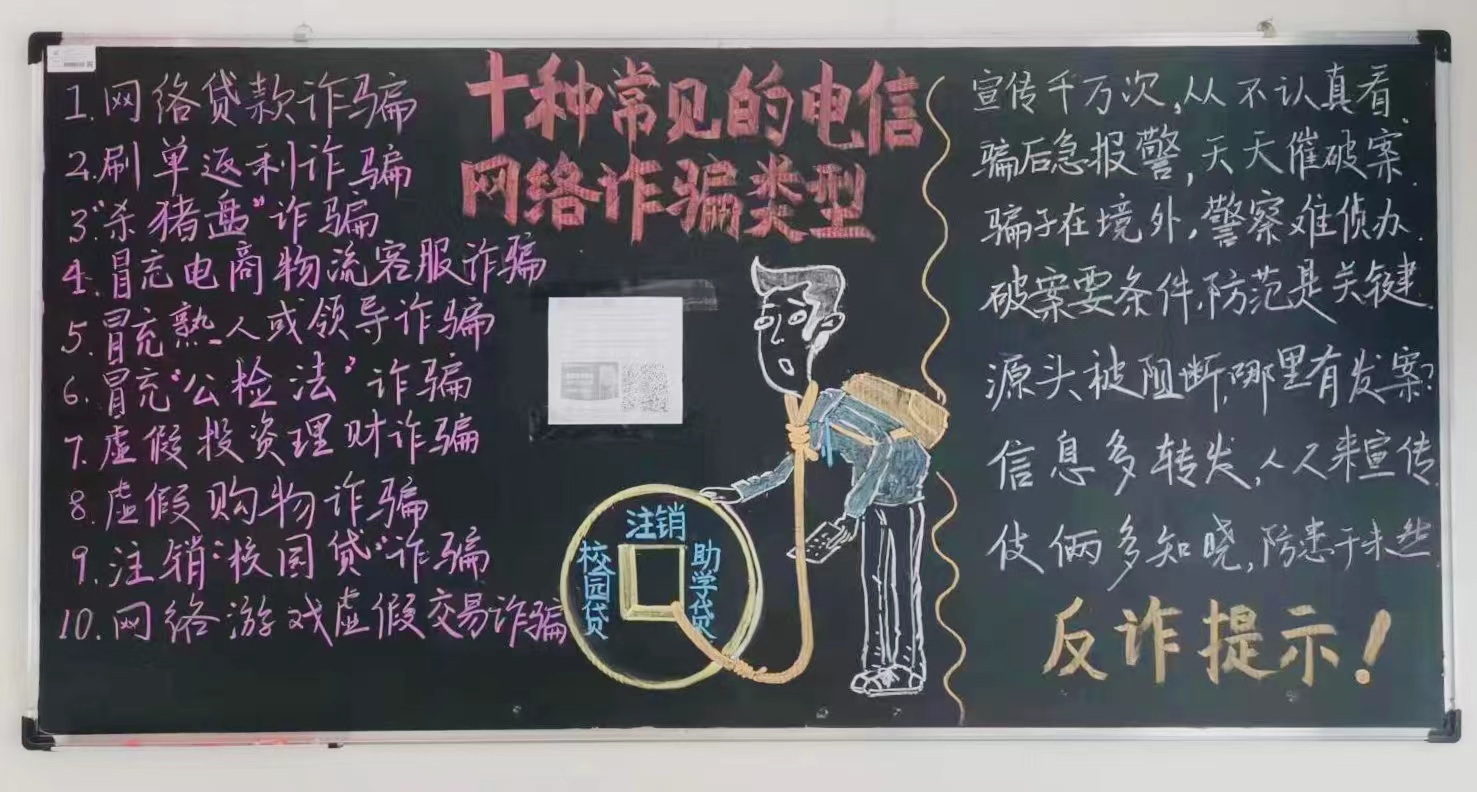 十种常见的电信
网络诈骗类型
1.网络贷款诈骗
2.刷单返利诈骗
3.“杀猪盘”诈骗
4.冒充电商物流客服诈骗
5.冒充熟人或领导诈骗
6.冒充“公检法”诈骗
7.虚假投资理财诈骗
8.虚假购物诈骗
9.注销“校园贷”诈骗
10.网络游戏虚假交易诈骗
注销
校园贷
助学贷
宣传千万次,从不认真看.
骗后急报警,天天催破案.
骗子在境外,警察难侦办.
破案要条件,防范是关键.
源头被阻断,哪里有发案?
信息多转发,人人来宣传.
伎俩多知晓,防患于未然
反诈提示!